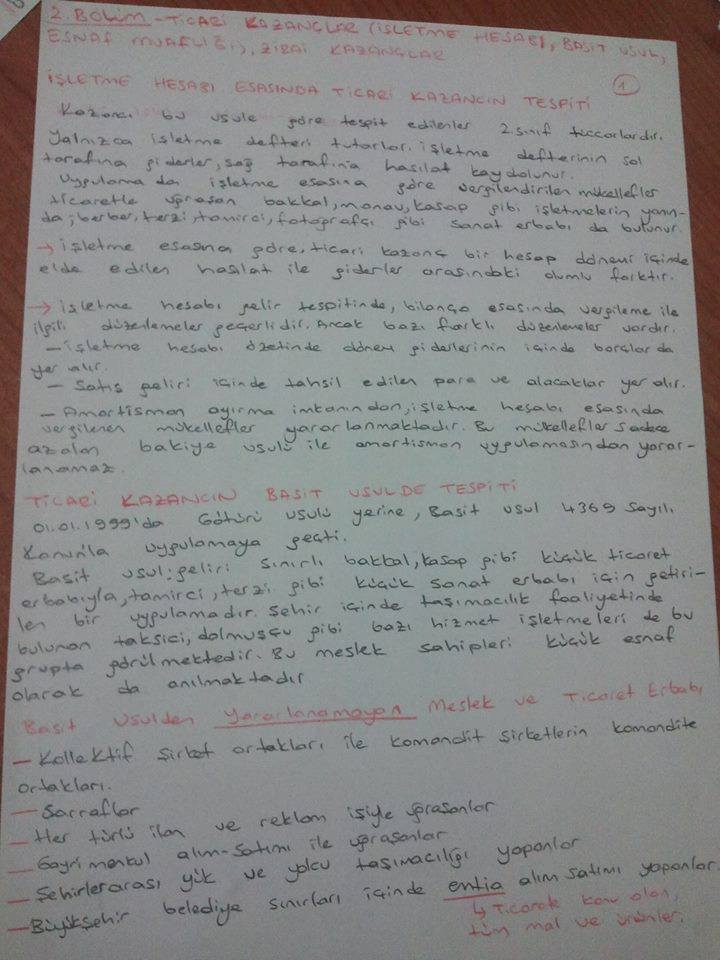 2. BÖLÜM - TİCARİ KAZANÇLAR (İŞLETME HESABI, BASİT USUL,
ESNAF MUAFLIĞI), ZİRAİ KAZANÇLAR
1
İŞLETME HESABI ESASINDA TİCARİ KAZANCIN TESPİTİ
Kazancı bu usule göre tespit edilenler 2.sınıf tüccarlardır.
Yalnızca işletme defteri tutarlar. işletme defterinin sol
tarafına giderler, sağ tarafına hasılat kaydolunur.
Uygulama da işletme esasına göre vergilendirilen mükellefler
ticaretle uğraşan bakkal, manav, kasap gibi işletmelerin yanın-
da; berber, terzi, tamirci, fotoğrafçı gibi sanat erbabı da bulunur.
→ işletme esasına göre, ticari kazanç bir hesap dönemi içinde
elde edilen hasılat ile giderler arasındaki olumlu farktır.
→ işletme hesabı gelir tespitinde, bilanço esasında vergileme ile
ilgili düzenlemeler geçerlidir. Ancak bazı farklı düzenlemeler vardır.
- işletme hesabı özetinde dönem giderlerinin içinde borçlar da
yer alır.
- Satış geliri içinde tahsil edilen para ve alacaklar yer alır.
- Amortisman ayırma imkanından, işletme hesabı esasında
vergilenen mükellefler yararlanmaktadır. Bu mükellefler sadece
azalan bakiye usulü ile amortisman uygulamasından yarar-
lanamaz.
TİCARİ KAZANCIN BASİT USULDE TESPİTİ
01.01.1999'da Götürü usulü yerine, Basit usul 4369 sayılı
Kanunla uygulamaya geçti.
Basit usul: geliri sınırlı bakkal, kasap gibi küçük ticaret
erbabıyla, tamirci, terzi gibi küçük sanat erbabı için getiri-
len bir uygulamadır. Şehir içinde taşımacılık faaliyetinde
bulunan taksici, dolmuşçu gibi bazı hizmet işletmeleri de bu
grupta görülmektedir. Bu meslek sahipleri küçük esnaf
olarak da anılmaktadır
Basit Usulden Yararlanamayan Meslek ve Ticaret Erbabı
- Kollektif şirket ortakları ile komandit şirketlerin komandite
ortakları.
- Sarraflar
- Her türlü ilan ve reklam işiyle uğraşanlar
- Gayrimenkul alım-satımı ile uğraşanlar
- Şehirlerarası yük ve yolcu taşımacılığı yapanlar
- Büyükşehir belediye sınırları içinde emtia alım satımı yapanlar.
↳ Ticarete konu olan,
tüm mal ve ürünler.